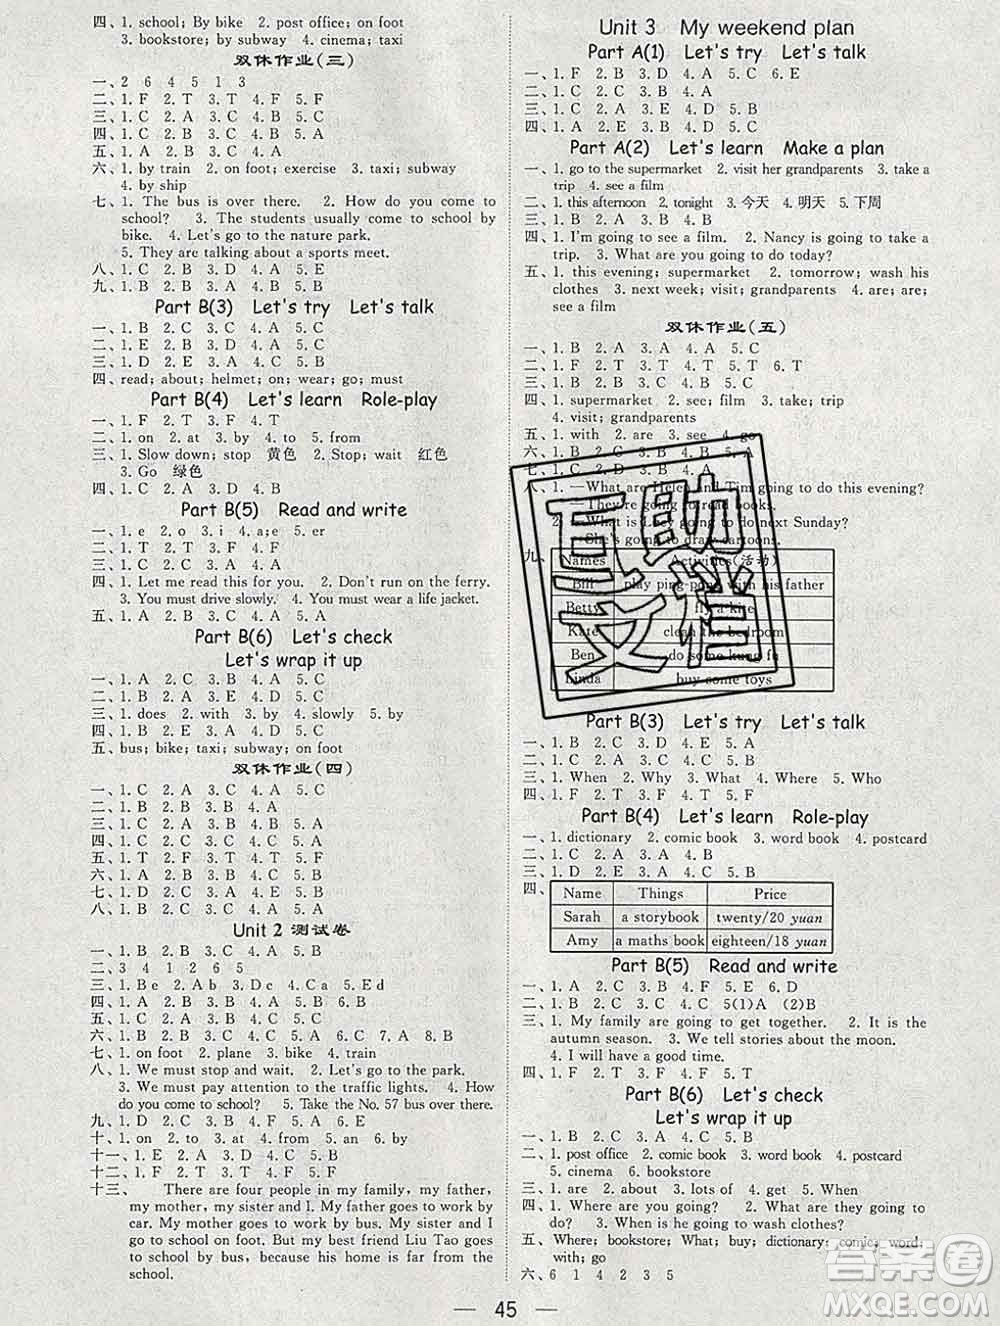 四、1. school; By bike 2. post office; on foot
3. bookstore; by subway 4. cinema; taxi
双休作业(三)
一、2 6 4 5 1 3
二、1. F 2. T 3. T 4. F 5. F
三、1. C 2. A 3. C 4. B 5. C
四、1. C 2. C 3. C 4. B 5. A
五、1. A 2. B 3. B 4. B 5. A
六、1. by train 2. on foot; exercise 3. taxi; subway
4. by ship
七、1. The bus is over there. 2. How do you come to
school? 3. The students usually come to school by
bike. 4. Let's go to the nature park.
5. They are talking about a sports meet.
八、1. C 2. B 3. D 4. A 5. E
九、1. B 2. C 3. A 4. A 5. B
Part B(3) Let's try Let's talk
一、1. B 2. C 3. B 4. A 5. A
二、1. E 2. C 3. B 4. A 5. D
三、1. D 2. E 3. A 4. C 5. B
四、read; about; helmet; on; wear; go; must
Part B(4) Let's learn Role-play
一、1. F 2. T 3. F 4. T
二、1. on 2. at 3. by 4. to 5. from
三、1. Slow down; stop 黄色 2. Stop; wait 红色
3. Go 绿色
四、1. C 2. A 3. D 4. B
Part B(5) Read and write
一、1. e 2. o 3. i 4. a;e 5. er
二、1. T 2. F 3. T 4. F 5. F
三、1. C 2. C 3. A 4. A 5. C
四、1. Let me read this for you. 2. Don't run on the ferry.
3. You must drive slowly. 4. You must wear a life jacket.
五、1. A 2. C 3. B 4. D
Part B(6) Let's check
Let's wrap it up
一、1. A 2. C 3. B 4. A 5. C
二、1. B 2. A 3. E 4. D 5. C
三、1. does 2. with 3. by 4. slowly 5. by
四、1. B 2. E 3. A 4. D 5. C
五、bus; bike; taxi; subway; on foot
双休作业(四)
一、1. C 2. A 3. C 4. A 5. C
二、1. C 2. B 3. B 4. A
三、1. B 2. C 3. C 4. B 5. A
四、1. C 2. C 3. C 4. A 5. C
五、1. T 2. F 3. F 4. T 5. T
六、1. A 2. B 3. B 4. C 5. A
七、1. D 2. A 3. E 4. C 5. B
八、1. C 2. B 3. A 4. B 5. A
Unit 2 测试卷
一、1. B 2. B 3. C 4. A 5. B
二、3 4 1 2 6 5
三、1. Be 2. Aa 3. Db 4. Cc 5. Ed
四、1. A 2. B 3. B 4. A 5. B
五、1. C 2. A 3. B 4. B 5. C
六、1. B 2. B 3. C 4. A 5. A 6. C 7. A 8. B
七、1. on foot 2. plane 3. bike 4. train
八、1. We must stop and wait. 2. Let's go to the park.
3. We must pay attention to the traffic lights. 4. How
do you come to school? 5. Take the No. 57 bus over there.
九、1. D 2. C 3. B 4. E 5. A
十、1. on 2. to 3. at 4. from 5. an 6. by
十一、1. E 2. A 3. D 4. C 5. B
十二、1. F 2. T 3. F 4. F 5. T
十三、 There are four people in my family, my father,
my mother, my sister and I. My father goes to work by
car. My mother goes to work by bus. My sister and I
go to school on foot. But my best friend Liu Tao goes
to school by bus, because his home is far from the
school.
Unit 3 My weekend plan
Part A(1) Let's try Let's talk
一、1. F 2. B 3. D 4. A 5. C 6. E
二、1. C 2. D 3. B 4. A
三、1. C 2. A 3. E 4. D 5. B
四、1. A 2. E 3. B 4. C 5. D
Part A(2) Let's learn Make a plan
一、1. go to the supermarket 2. visit her grandparents 3. take a
trip 4. see a film
二、1. this afternoon 2. tonight 3. 今天 4. 明天 5. 下周
三、1. B 2. A 3. B 4. B
四、1. I'm going to see a film. 2. Nancy is going to take a
trip. 3. What are you going to do today?
五、1. this evening; supermarket 2. tomorrow; wash his
clothes 3. next week; visit; grandparents 4. are; are;
see a film
双休作业(五)
一、1. B 2. A 3. A 4. A 5. C
二、1. F 2. T 3. T 4. T 5. T 6. T
三、1. B 2. A 3. C 4. B 5. C
四、1. supermarket 2. see; film 3. take; trip
4. visit; grandparents
五、1. with 2. are 3. see 4. go
六、1. B 2. C 3. B 4. B 5. A
七、1. C 2. D 3. B 4. A
八、1. —What are Helen and Tim going to do this evening?
—They're going to read books.
2. —What is Lily going to do next Sunday?
—She's going to draw cartoons.
九、
Names Activities(活动)
Bill play ping-pong with his father
Betty fly a kite
Kate clean the bedroom
Ben do some kung fu
Linda buy some toys
Part B(3) Let's try Let's talk
一、1. B 2. C 3. D 4. E 5. A
二、1. C 2. C 3. A 4. B 5. C
三、1. When 2. Why 3. What 4. Where 5. Who
四、1. F 2. T 3. F 4. T 5. F
Part B(4) Let's learn Role-play
一、1. dictionary 2. comic book 3. word book 4. postcard
二、1. C 2. A 3. A 4. B
三、1. D 2. E 3. A 4. C 5. B
四、
Name Things Price
Sarah a storybook twenty/20 yuan
Amy a maths book eighteen/18 yuan
Part B(5) Read and write
一、1. C 2. A 3. B 4. F 5. E 6. D
二、1. B 2. B 3. C 4. C 5(1)A (2)B
三、1. My family are going to get together. 2. It is the
autumn season. 3. We tell stories about the moon.
4. I will have a good time.
四、1. F 2. T 3. F 4. F 5. T
Part B(6) Let's check
Let's wrap it up
一、1. B 2. C 3. B 4. A 5. C
二、1. post office 2. comic book 3. word book 4. postcard
5. cinema 6. bookstore
三、1. are 2. about 3. lots of 4. get 5. When
四、1. Where are you going? 2. What are they going to
do? 3. When is he going to wash clothes?
五、Where; bookstore; What; buy; dictionary; comic; word;
with; go
六、6 1 4 2 3 5
45
互助文档
答案圈
MXQE.COM